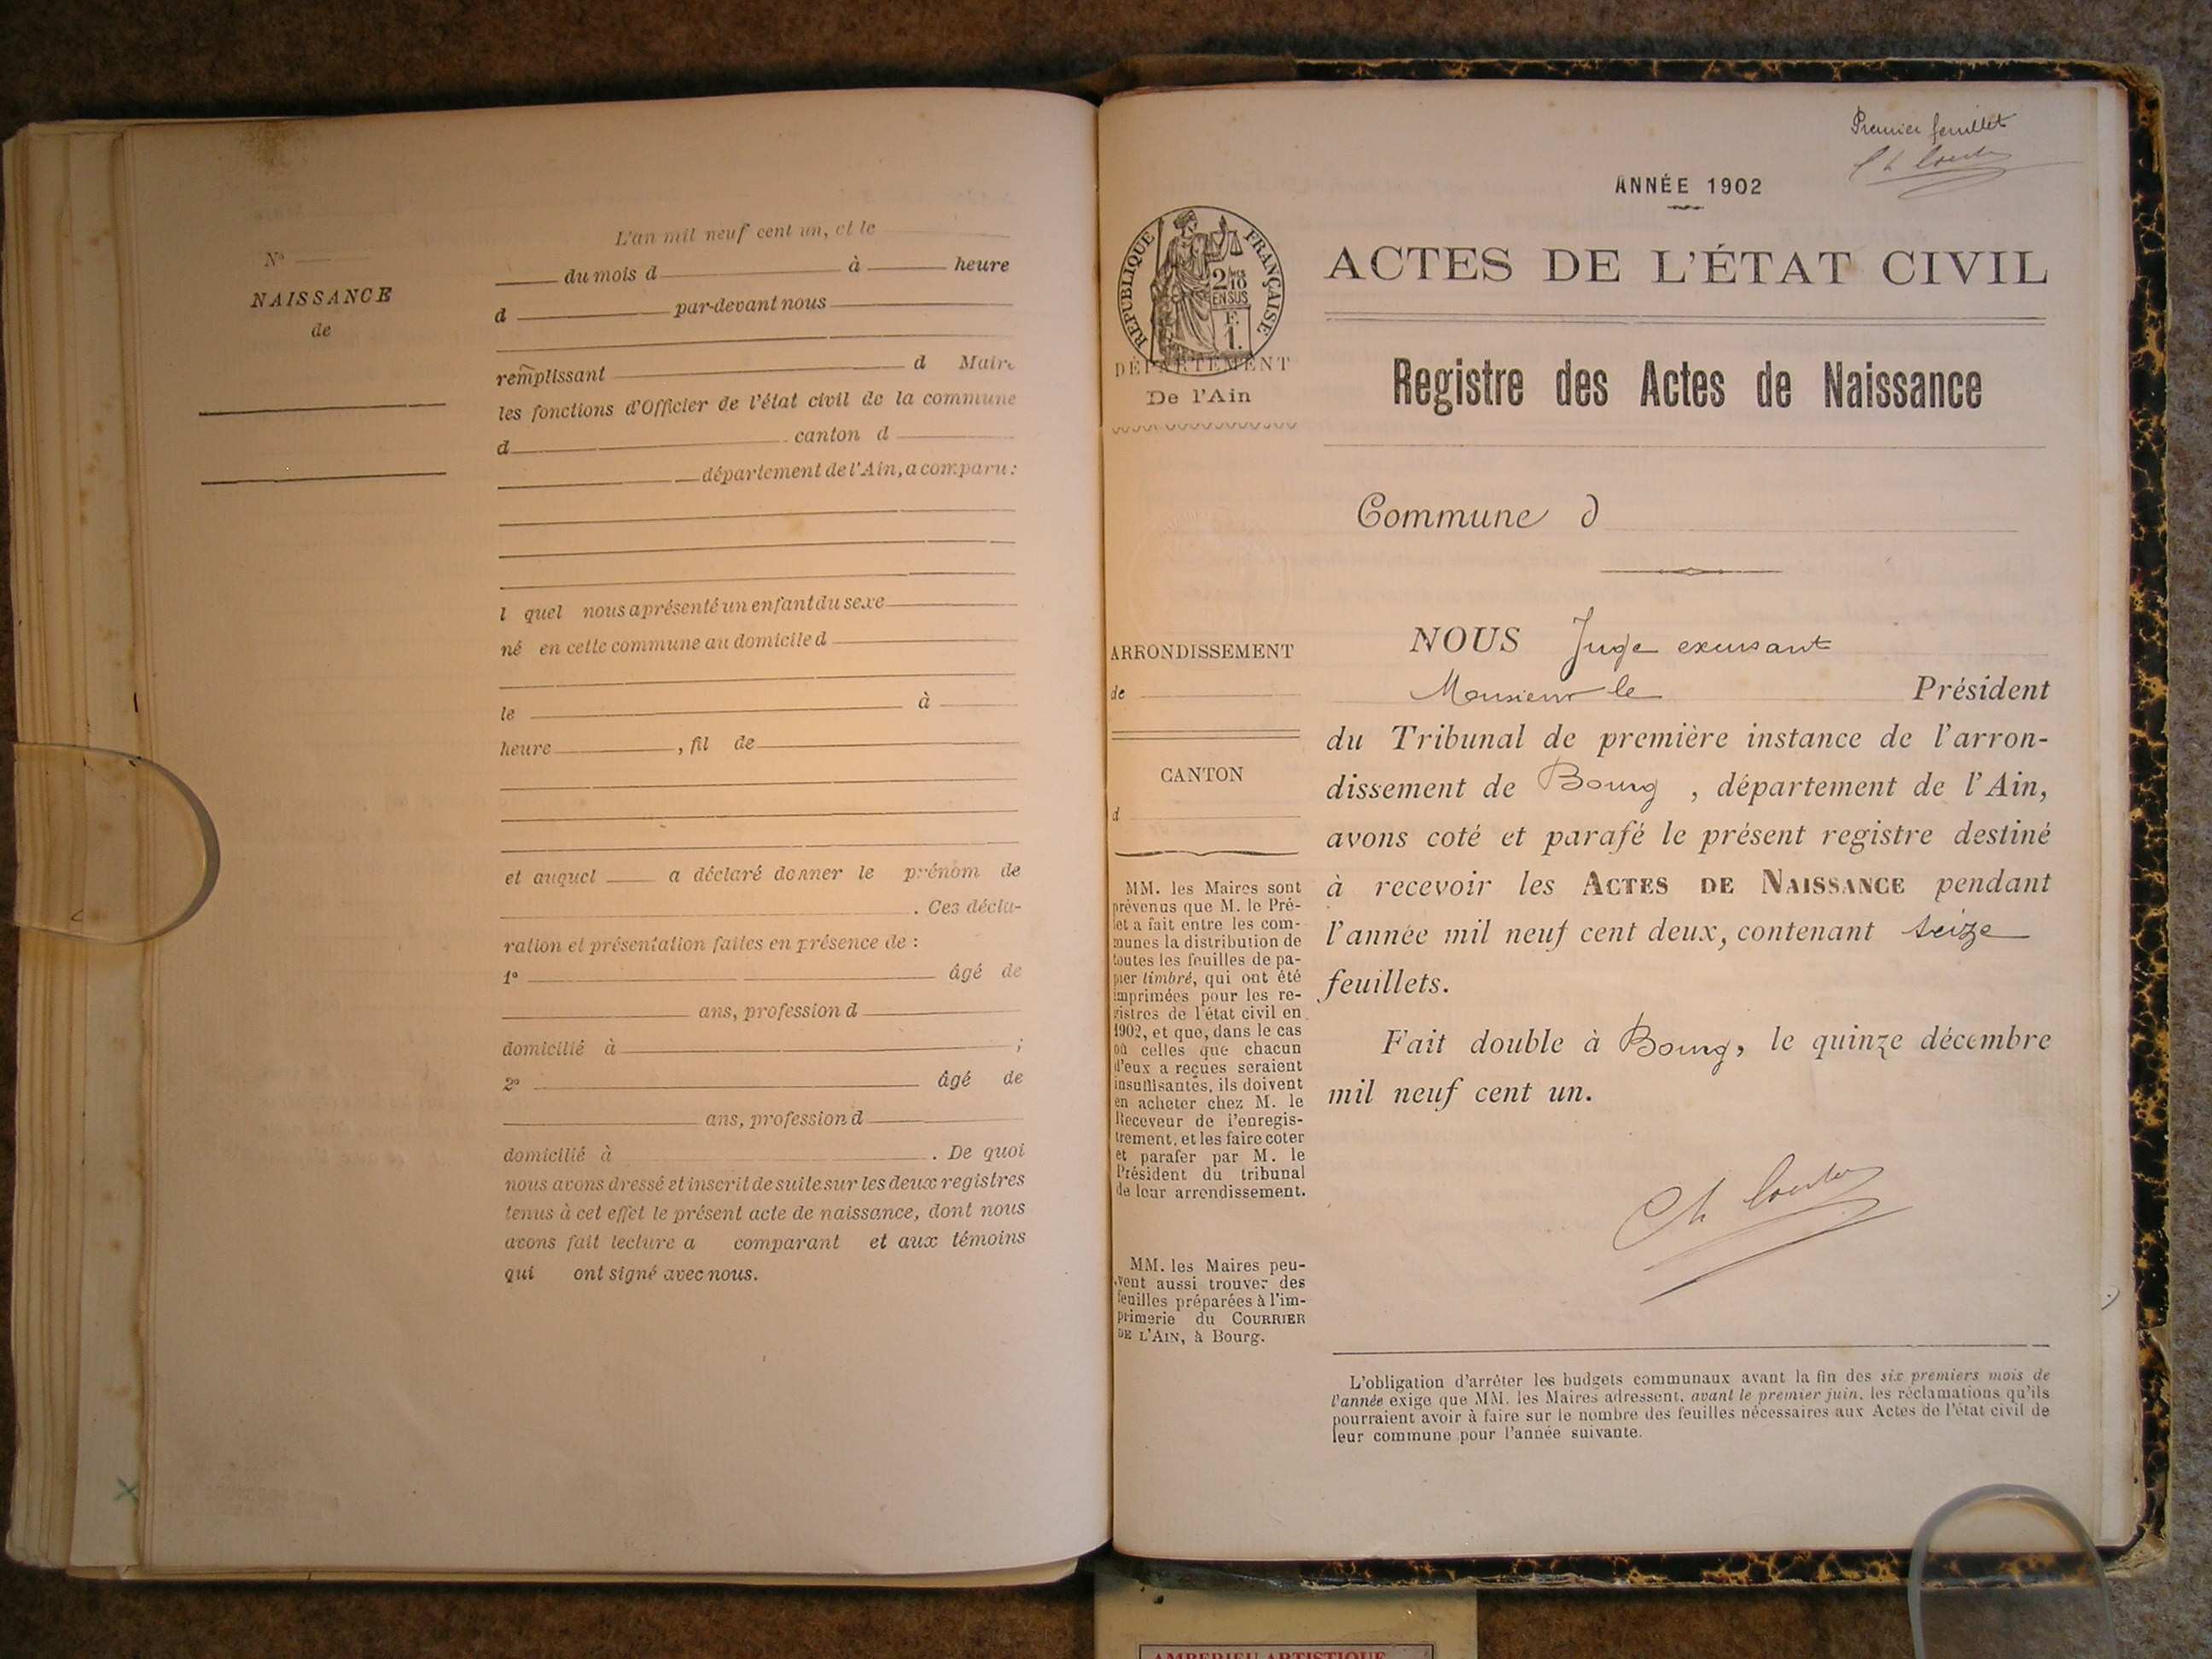 N°
NAISSANCE
de
L'an mil neuf cent un, et le
du mois d à heure
d par-devant nous
remplissant d Maire
les fonctions d'Officier de l'état civil de la commune
d canton d
département de l'Ain, a comparu :
l quel nous a présenté un enfant du sexe
né en cette commune au domicile d
le à
heure , fil de
et auquel a déclaré donner le prénom de
. Ces décla-
ration et présentation faites en présence de :
1° âgé de
ans, profession d
domicilié à ;
2° âgé de
ans, profession d
domicilié à . De quoi
nous avons dressé et inscrit de suite sur les deux registres
tenus à cet effet le présent acte de naissance, dont nous
avons fait lecture a comparant et aux témoins
qui ont signé avec nous.
Premier feuillet
ANNÉE 1902
RÉPUBLIQUE FRANÇAISE
2/10
EN SUS
F.
1.
DÉPARTEMENT
De l'Ain
ACTES DE L'ÉTAT CIVIL
Registre des Actes de Naissance
Commune d
ARRONDISSEMENT
de
CANTON
d
MM. les Maires sont
prévenus que M. le Pré-
fet a fait entre les com-
munes la distribution de
toutes les feuilles de pa-
pier timbré, qui ont été
imprimées pour les re-
gistres de l'état civil en
1902, et que, dans le cas
où celles que chacun
d'eux a reçues seraient
insuffisantes, ils doivent
en acheter chez M. le
Receveur de l'enregis-
trement, et les faire coter
et parafer par M. le
Président du tribunal
de leur arrondissement.
MM. les Maires peu-
vent aussi trouver des
feuilles préparées à l'im-
primerie du COURRIER
DE L'AIN, à Bourg.
NOUS Juge excusant
Monsieur le Président
du Tribunal de première instance de l'arron-
dissement de Bourg , département de l'Ain,
avons coté et parafé le présent registre destiné
à recevoir les ACTES DE NAISSANCE pendant
l'année mil neuf cent deux, contenant seize
feuillets.
Fait double à Bourg, le quinze décembre
mil neuf cent un.
L'obligation d'arrêter les budgets communaux avant la fin des six premiers mois de
l'année exige que MM. les Maires adressent, avant le premier juin, les réclamations qu'ils
pourraient avoir à faire sur le nombre des feuilles nécessaires aux Actes de l'état civil de
leur commune pour l'année suivante.
AMBERIEU ARTISTIQUE